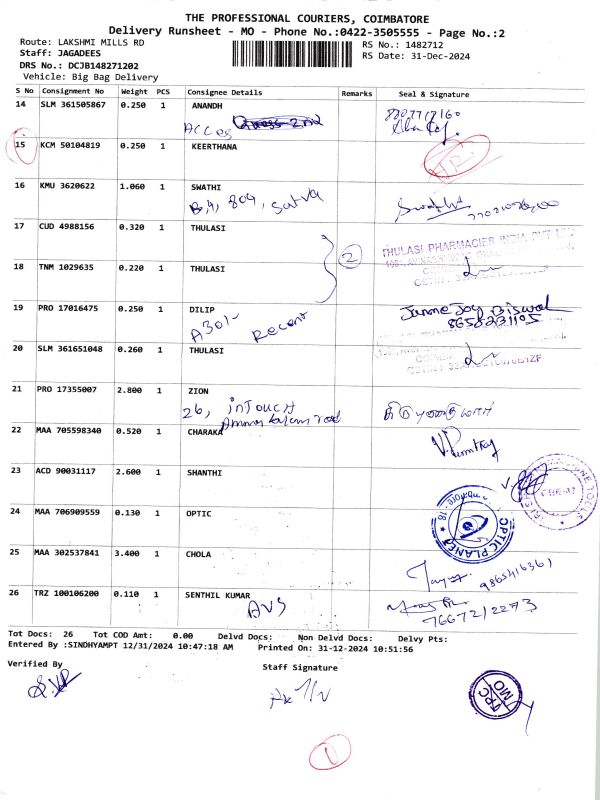 THE PROFESSIONAL COURIERS, COIMBATORE
Delivery Runsheet - MO - Phone No.:0422-3505555 - Page No.:2
Route: LAKSHMI MILLS RD
RS No.: 1482712
Staff: JAGADEES
RS Date: 31-Dec-2024
DRS No.: DCJB148271202
Vehicle: Big Bag Delivery
S No Consignment No Weight PCS Consignee Details Remarks Seal & Signature
14 SLM 361505867 0.250 1 ANANDH
Acces
15 KCM 50104819 0.250 1 KEERTHANA
16 KMU 3620622 1.060 1 SWATHI
B,4, 809, Satva
17 CUD 4988156 0.320 1 THULASI
THULASI PHARMACIES INDIA PVT LTD
2
18 TNM 1029635 0.220 1 THULASI
19 PRO 17016475 0.250 1 DILIP
A301-
Recent
Janme Joy Biswal
8658231195
20 SLM 361651048 0.260 1 THULASI
21 PRO 17355007 2.800 1 ZION
26, inTouch
22 MAA 705598340 0.520 1 CHARAKA
23 ACD 90031117 2.600 1 SHANTHI
24 MAA 706909559 0.130 1 OPTIC
OPTIC PLANET
25 MAA 302537841 3.400 1 CHOLA
26 TRZ 100106200 0.110 1 SENTHIL KUMAR
AVS
7667212273
Tot Docs: 26 Tot COD Amt: 0.00 Delvd Docs: Non Delvd Docs: Delvy Pts:
Entered By :SINDHYAMPT 12/31/2024 10:47:18 AM Printed On: 31-12-2024 10:51:56
Verified By
Staff Signature
TPC
MO
1